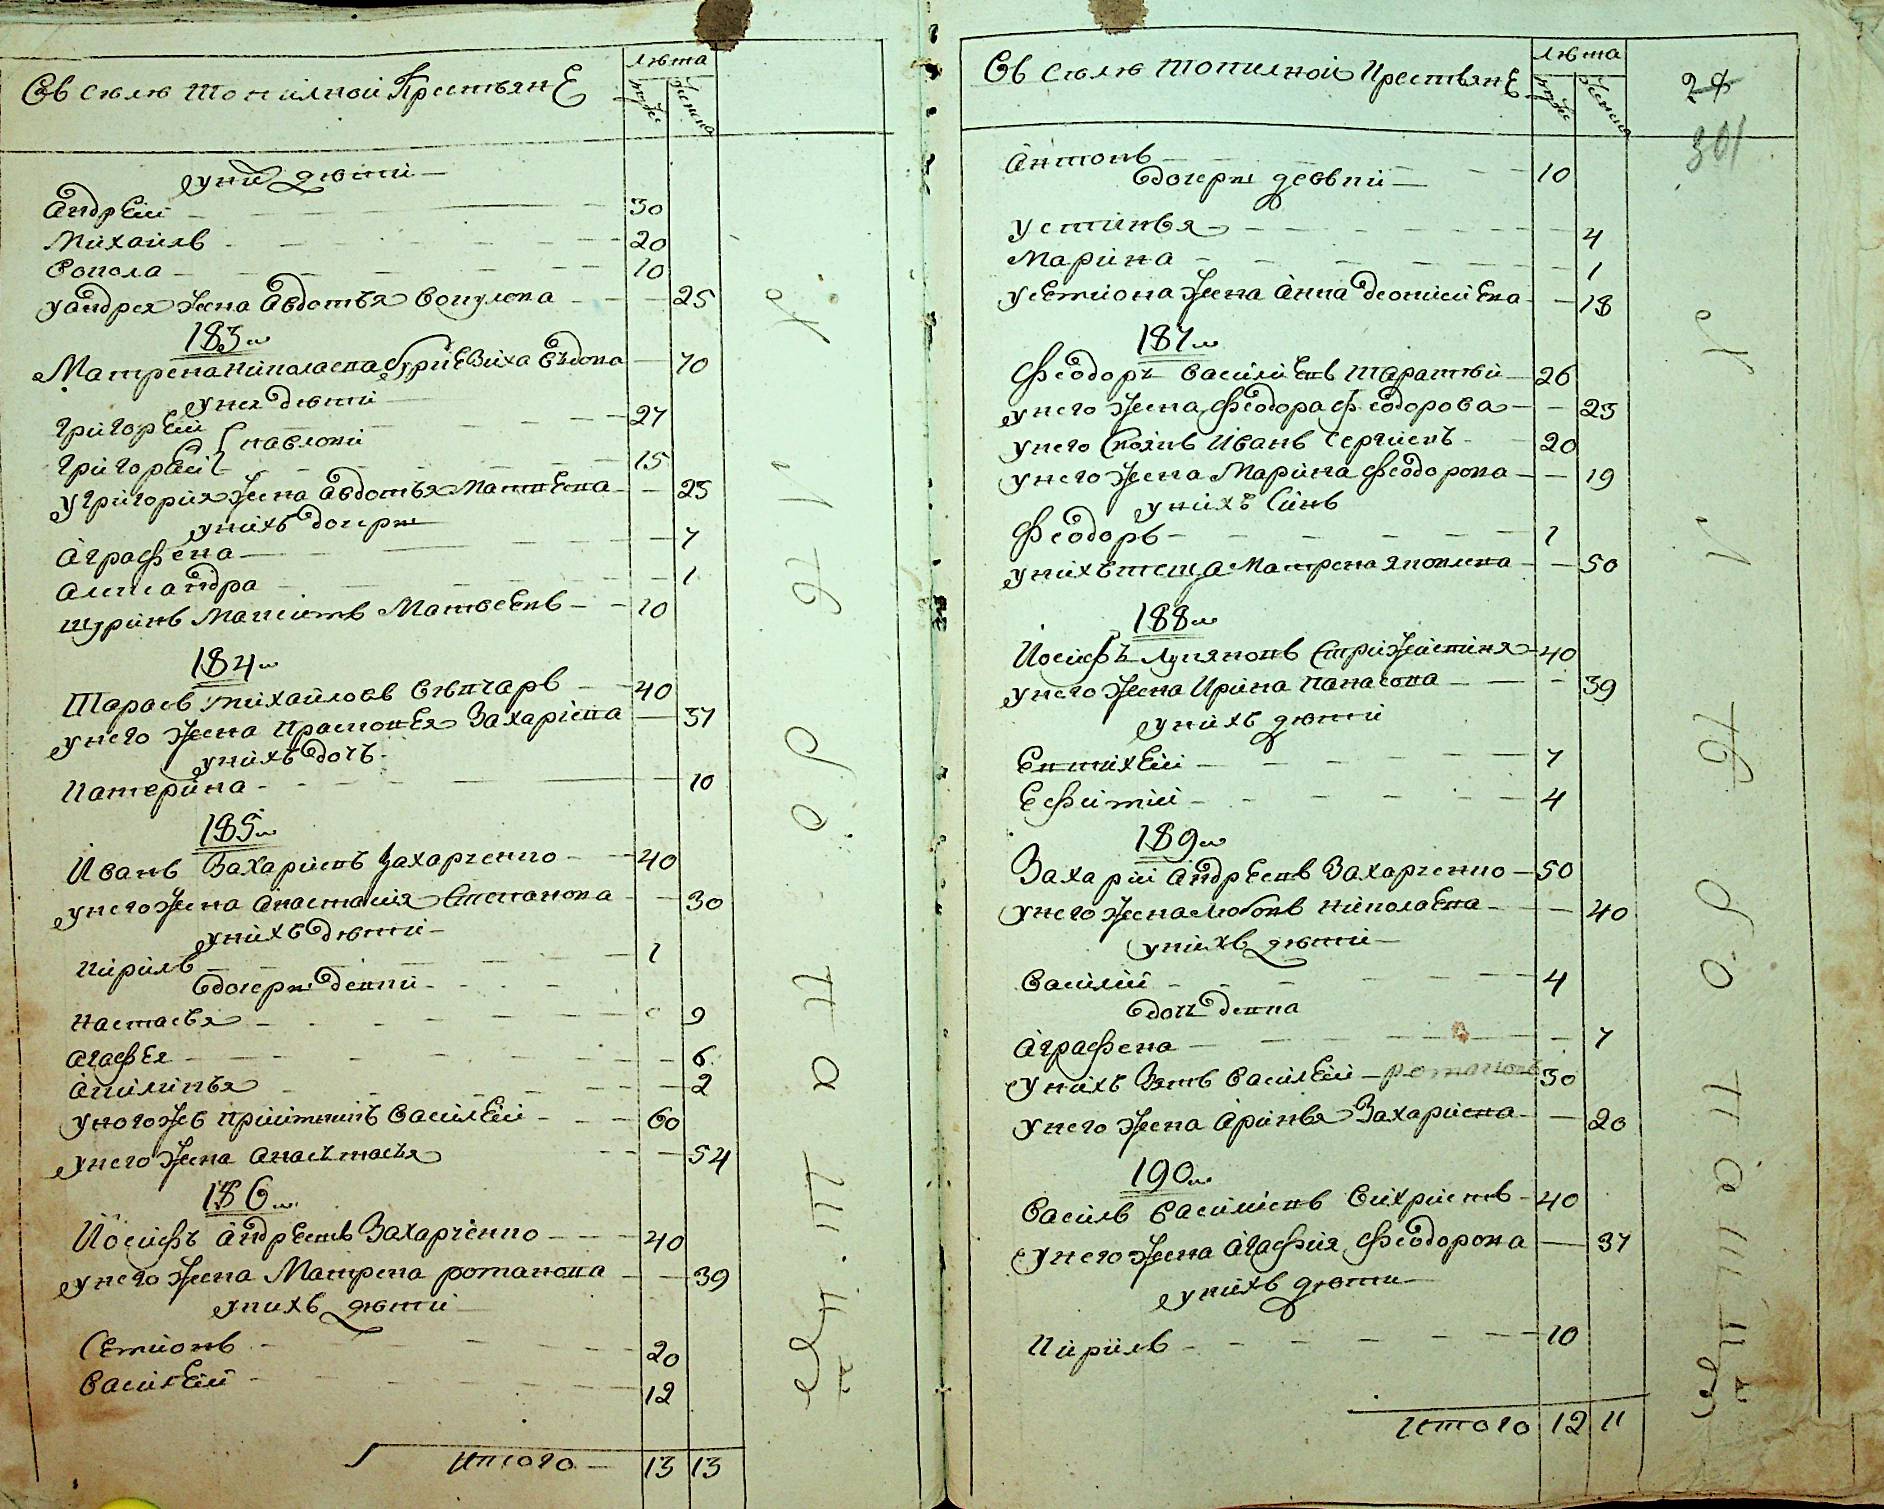 Въ селе Топилной Крестьяне
лета
мужес
женска
у них дети
Андрей 30
Михайлъ 20
10
у андрея жена Авдотья 25
183
Матрена Николаева вдова 70
у нея дети
Григорей 27
Григорей 15
Павлови
у Григория жена Авдотья Матвеева 23
у нихъ дочери
Аграфена 7
Александра 1
шуринъ Максимъ Матвеевъ 10
184
Тарасъ михайловъ 40
у него жена Захариева 37
у нихъ дочь
Катерина 10
185
Иванъ Захариевъ Захарченко 40
у него жена Анастасия Степанова 30
у нихъ дети
Кирилъ 1
дочери девки
Настасья 9
Агафья 6
Акилинья 2
у него же Василей 60
у него жена Анастасья 54
186
Иосифъ Андреевъ Захарченко 40
у него жена Матрена романова 39
у нихъ дети
Семионъ 20
Василей 12
Итого 13 13
Въ селе Топилной Крестьяне
лета
мужес
женска
301
Антонъ 10
дочери девки
Устинья 4
Марина 1
у Семиона жена Анна 18
187
Феодоръ Василиевъ 26
у него жена Феодора Феодорова 23
у него Своякъ Иванъ Сергиевъ 20
у него жена Марина Феодорова 19
у нихъ Синъ
Феодоръ 1
у нихъ теща Матрена Яковлева 50
188
Иосифъ Лукяновъ 40
у него жена Ирина Панасова 39
у нихъ дети
Евтихей 7
Ефимий 4
189
Захарий Андреевъ Захарченко 50
у него жена Любовъ Николаева 40
у нихъ дети
Василий 4
дочь девка
Аграфена 7
у нихъ Зять Василей романовъ 30
у него жена Аринья Захариева 20
190
Василь Василиевъ 40
у него жена Агафия Феодорова 37
у нихъ дети
Кирилъ 10
Итого 12 11